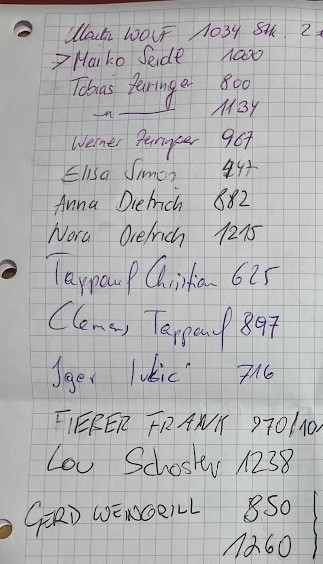 WOLF 1034 Stk. 2
→ Maiko Seidl 1000
Tobias Zeiringer 800
—"— 1134
Werner 967
Elisa Simon 947
Anna Dietrich 882
Nora Dietrich 1215
Tappauf Christian 625
Clemens Tappauf 897
Igor Lukić 716
FIERER FRANK 970/10
Lou Schoster 1238
GERD WEINGRILL 850
1260